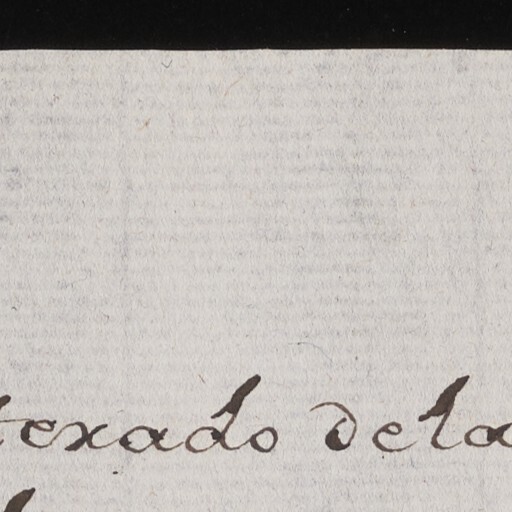 texado dela